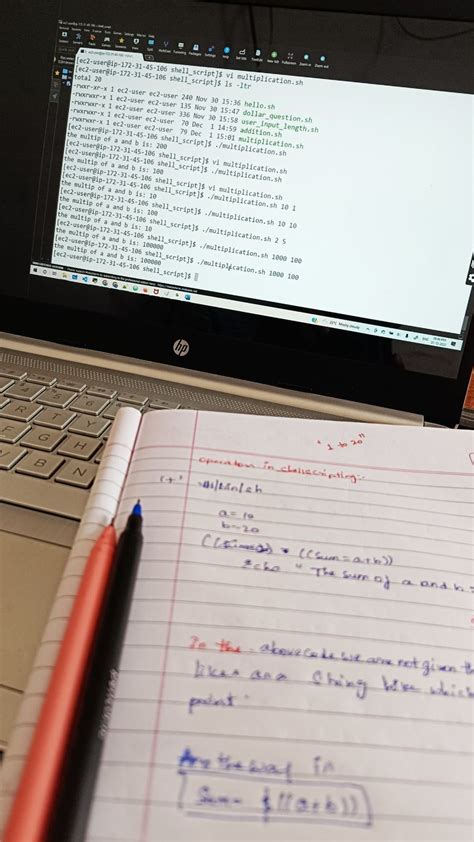 [ec2-user@ip-172-31-45-106 shell_script]$ vi multiplication.sh
[ec2-user@ip-172-31-45-106 shell_script]$ ls -ltr
total 20
-rwxr-xr-x 1 ec2-user ec2-user 240 Nov 30 15:36 hello.sh
-rwxrwxr-x 1 ec2-user ec2-user 135 Nov 30 15:47 dollar_question.sh
-rwxrwxr-x 1 ec2-user ec2-user 336 Nov 30 15:58 user_input_length.sh
-rwxrwxr-x 1 ec2-user ec2-user 70 Dec 1 14:59 addition.sh
-rwxrwxr-x 1 ec2-user ec2-user 79 Dec 1 15:01 multiplication.sh
[ec2-user@ip-172-31-45-106 shell_script]$ ./multiplication.sh
the multip of a and b is: 200
[ec2-user@ip-172-31-45-106 shell_script]$ vi multiplication.sh
[ec2-user@ip-172-31-45-106 shell_script]$ ./multiplication.sh
the multip of a and b is: 100
[ec2-user@ip-172-31-45-106 shell_script]$ vi multiplication.sh
[ec2-user@ip-172-31-45-106 shell_script]$ ./multiplication.sh 10 1
the multip of a and b is: 10
[ec2-user@ip-172-31-45-106 shell_script]$ ./multiplication.sh 10 10
the multip of a and b is: 100
[ec2-user@ip-172-31-45-106 shell_script]$ ./multiplication.sh 2 5
the multip of a and b is: 10
[ec2-user@ip-172-31-45-106 shell_script]$ ./multiplication.sh 1000 100
the multip of a and b is: 100000
[ec2-user@ip-172-31-45-106 shell_script]$ ./multiplication.sh 1000 100
the multip of a and b is: 100000
[ec2-user@ip-172-31-45-106 shell_script]$
23°C Mostly cloudy
hp
B
N
"1 to 20"
in
a=10
b=20
((sum=a+b))
echo "The sum of a and b
In the above code we are not given
string like which
point
the way in
((a+b))